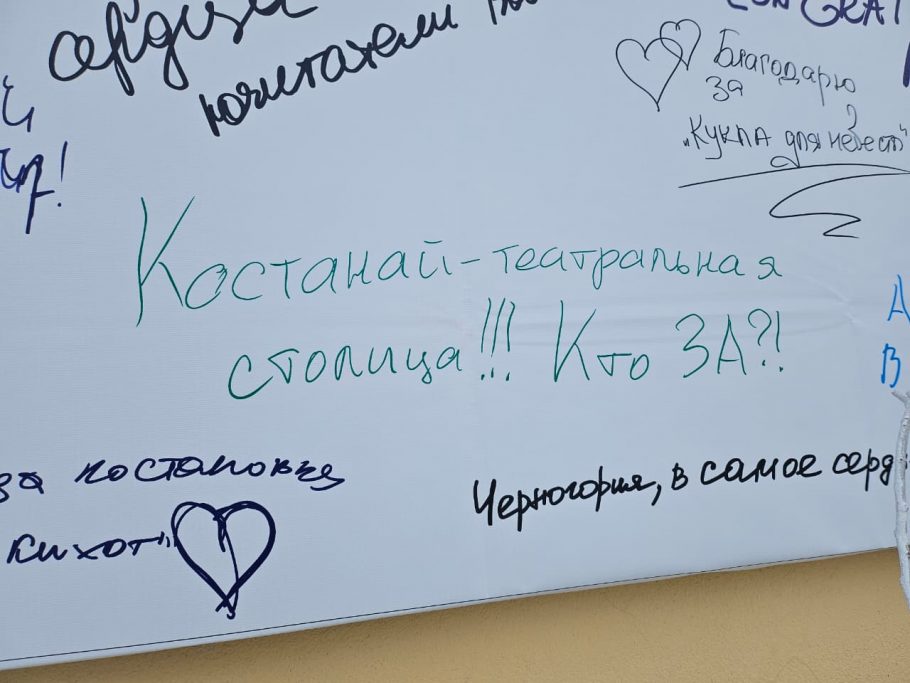 сердца
почитатели
CONGRAT
Благодарю
за
"Кукла для невест"
Костанай-театральная
столица!!! Кто ЗА?!
А
В
за постановку
Кихот"
Черногория, в самое серд